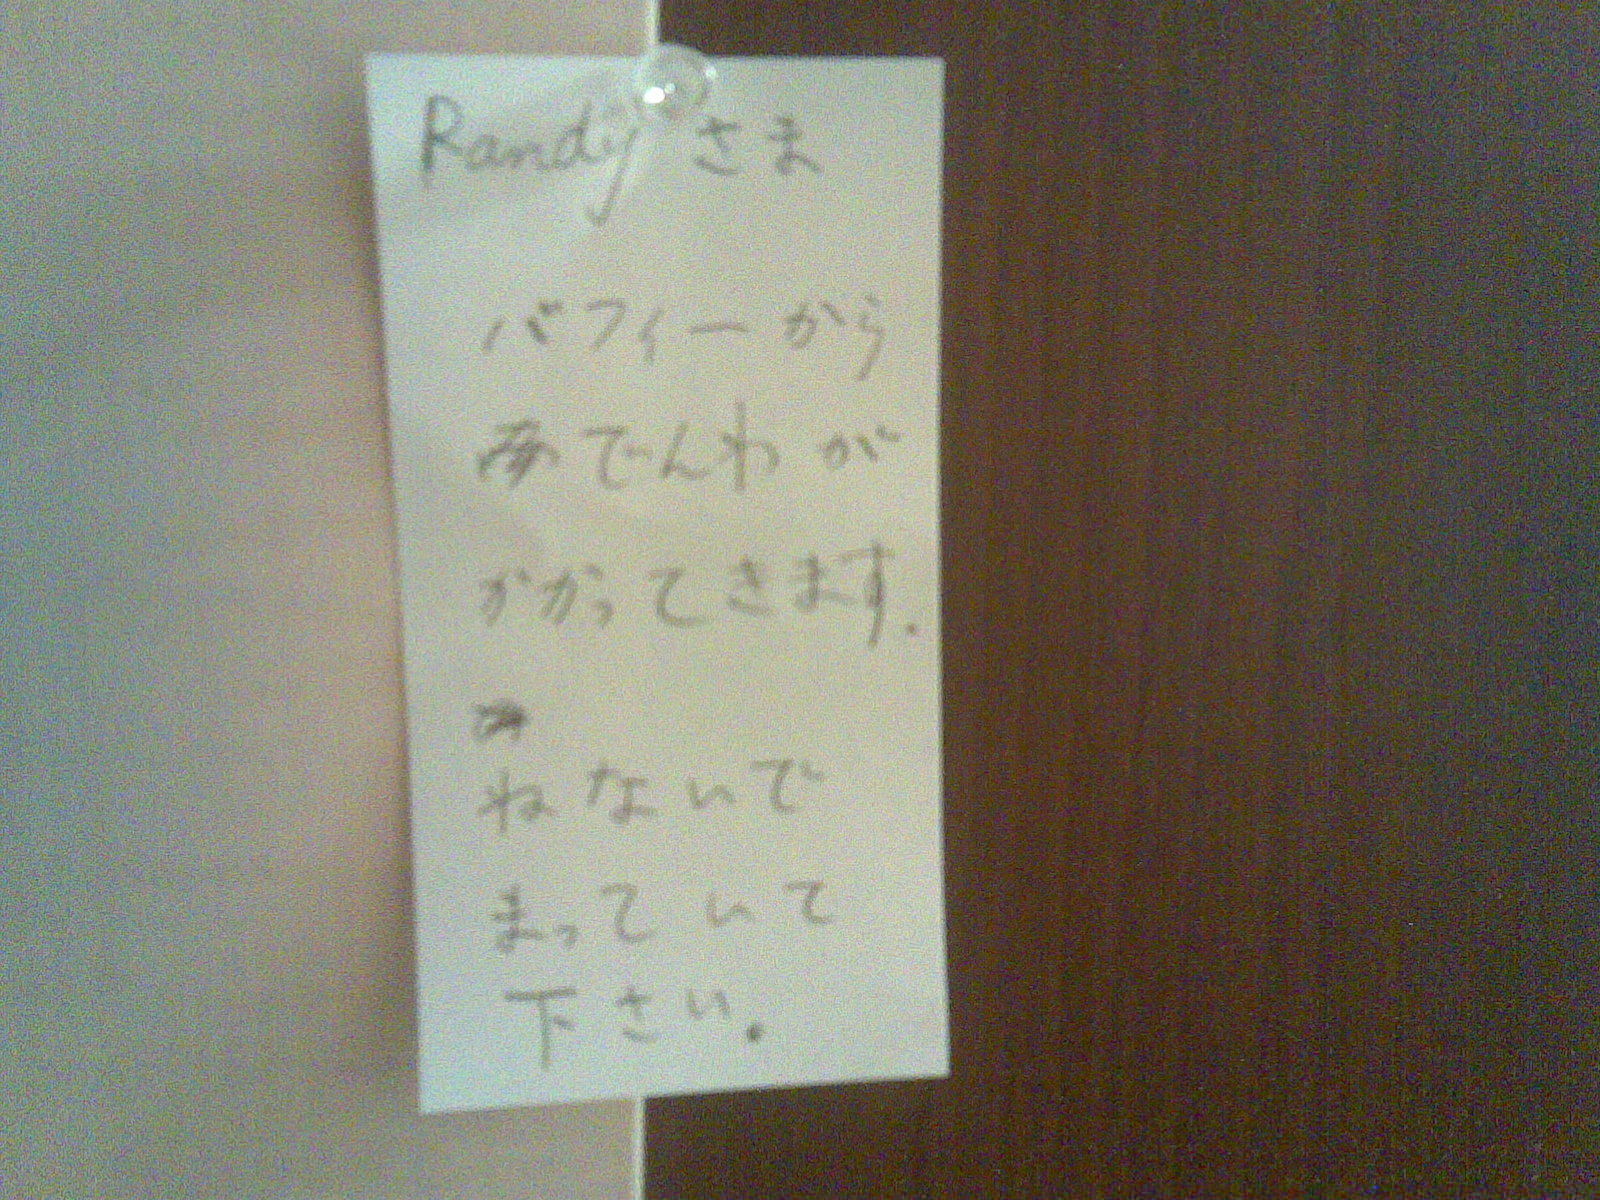 Randy さま
バフィーから
おでんわが
かかってきます.
ねないで
まっていて
下さい.